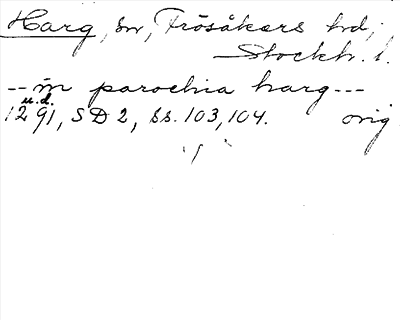 Harg, sn, Frösåkers hd,
Stockh. l.
-- in parochia harg ---
u.d.
1291, SD 2, ss. 103, 104. orig